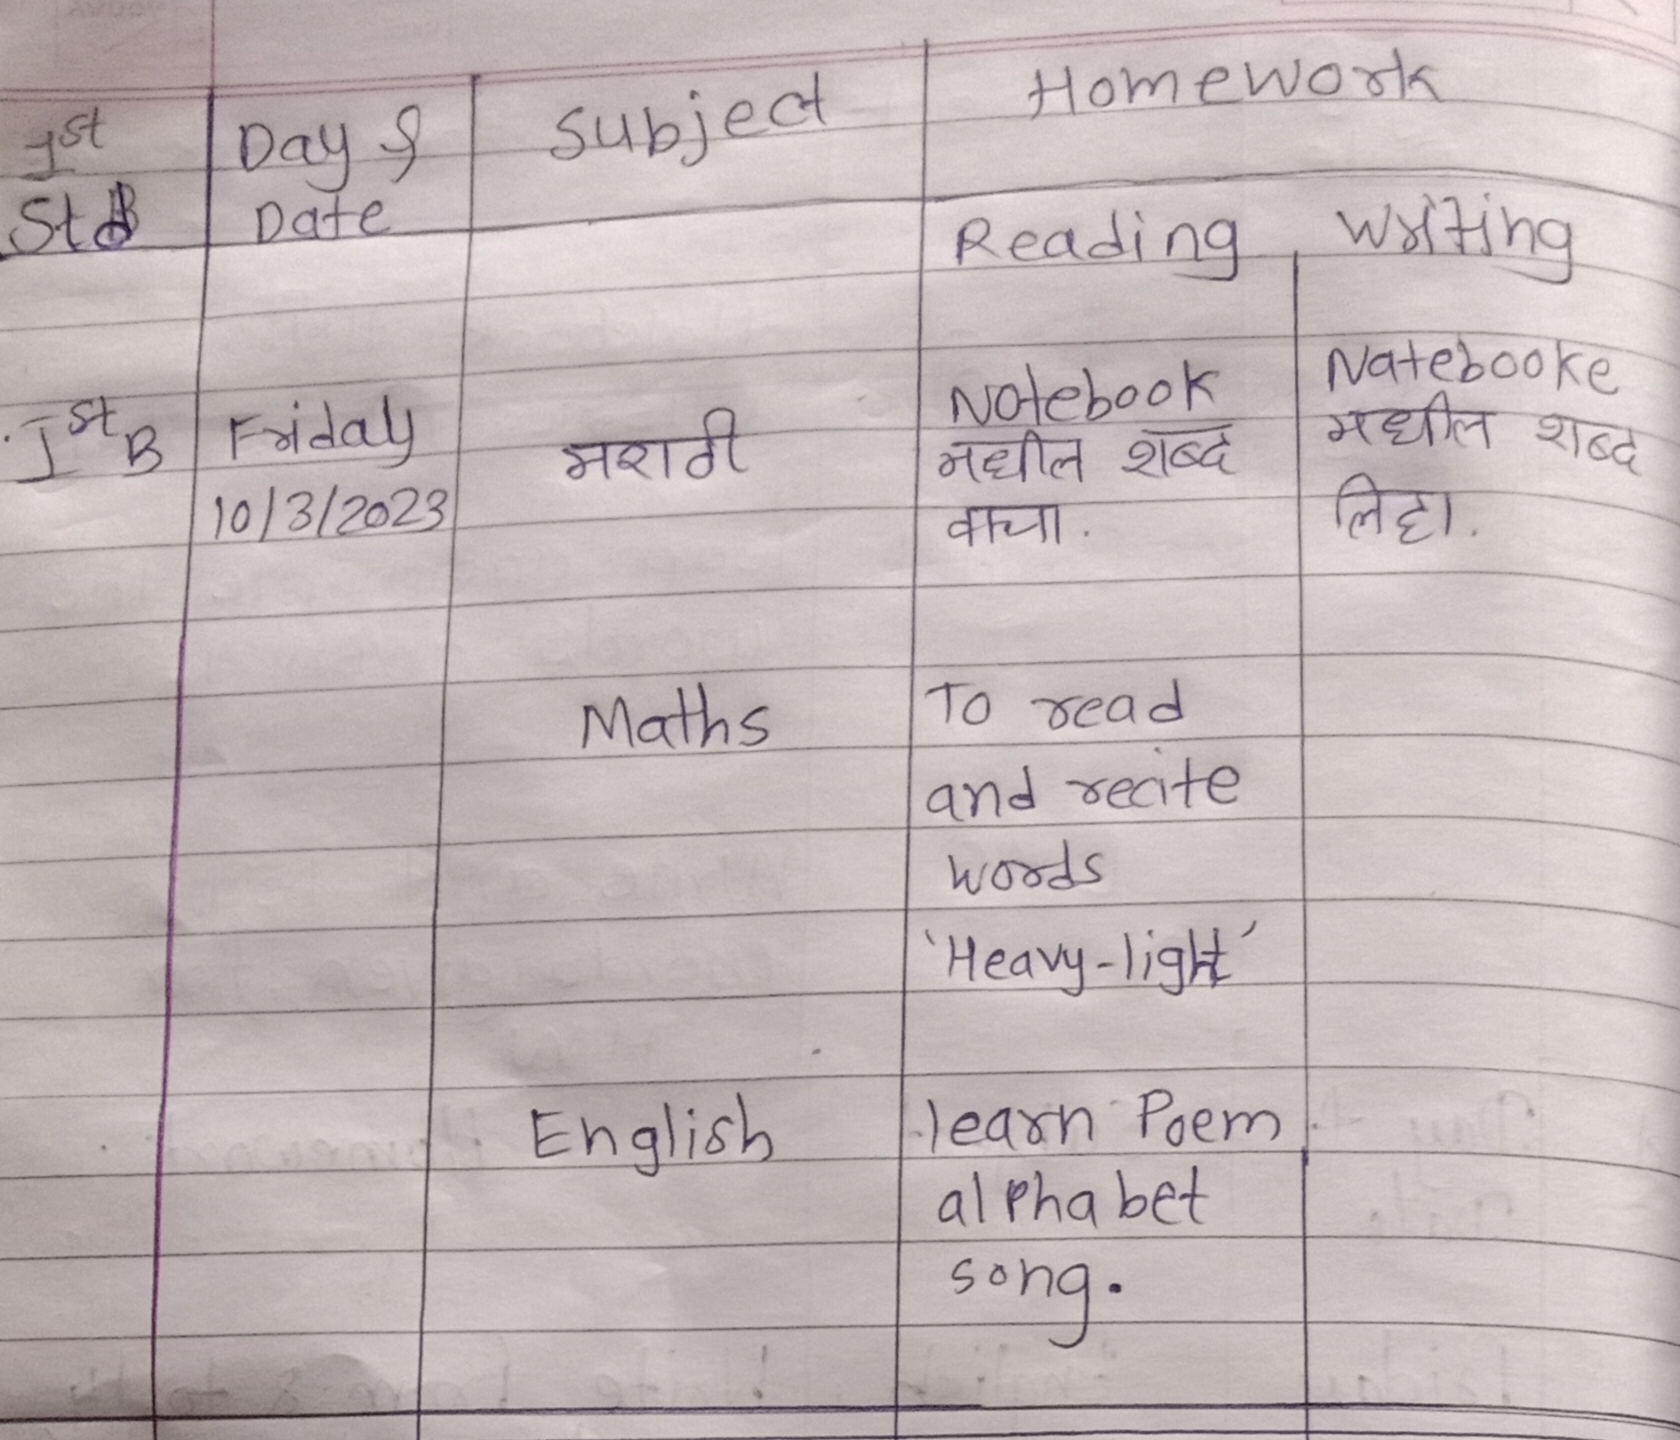 1st Day & Subject Homework
Std Date
Reading Writing
Ist B Friday मराठी Notebook Natebooke
10/3/2023 मधील शब्द मधील शब्द
वाचा. लिहा.
Maths To read
and recite
words
'Heavy-light'
English learn Poem
alphabet
song.